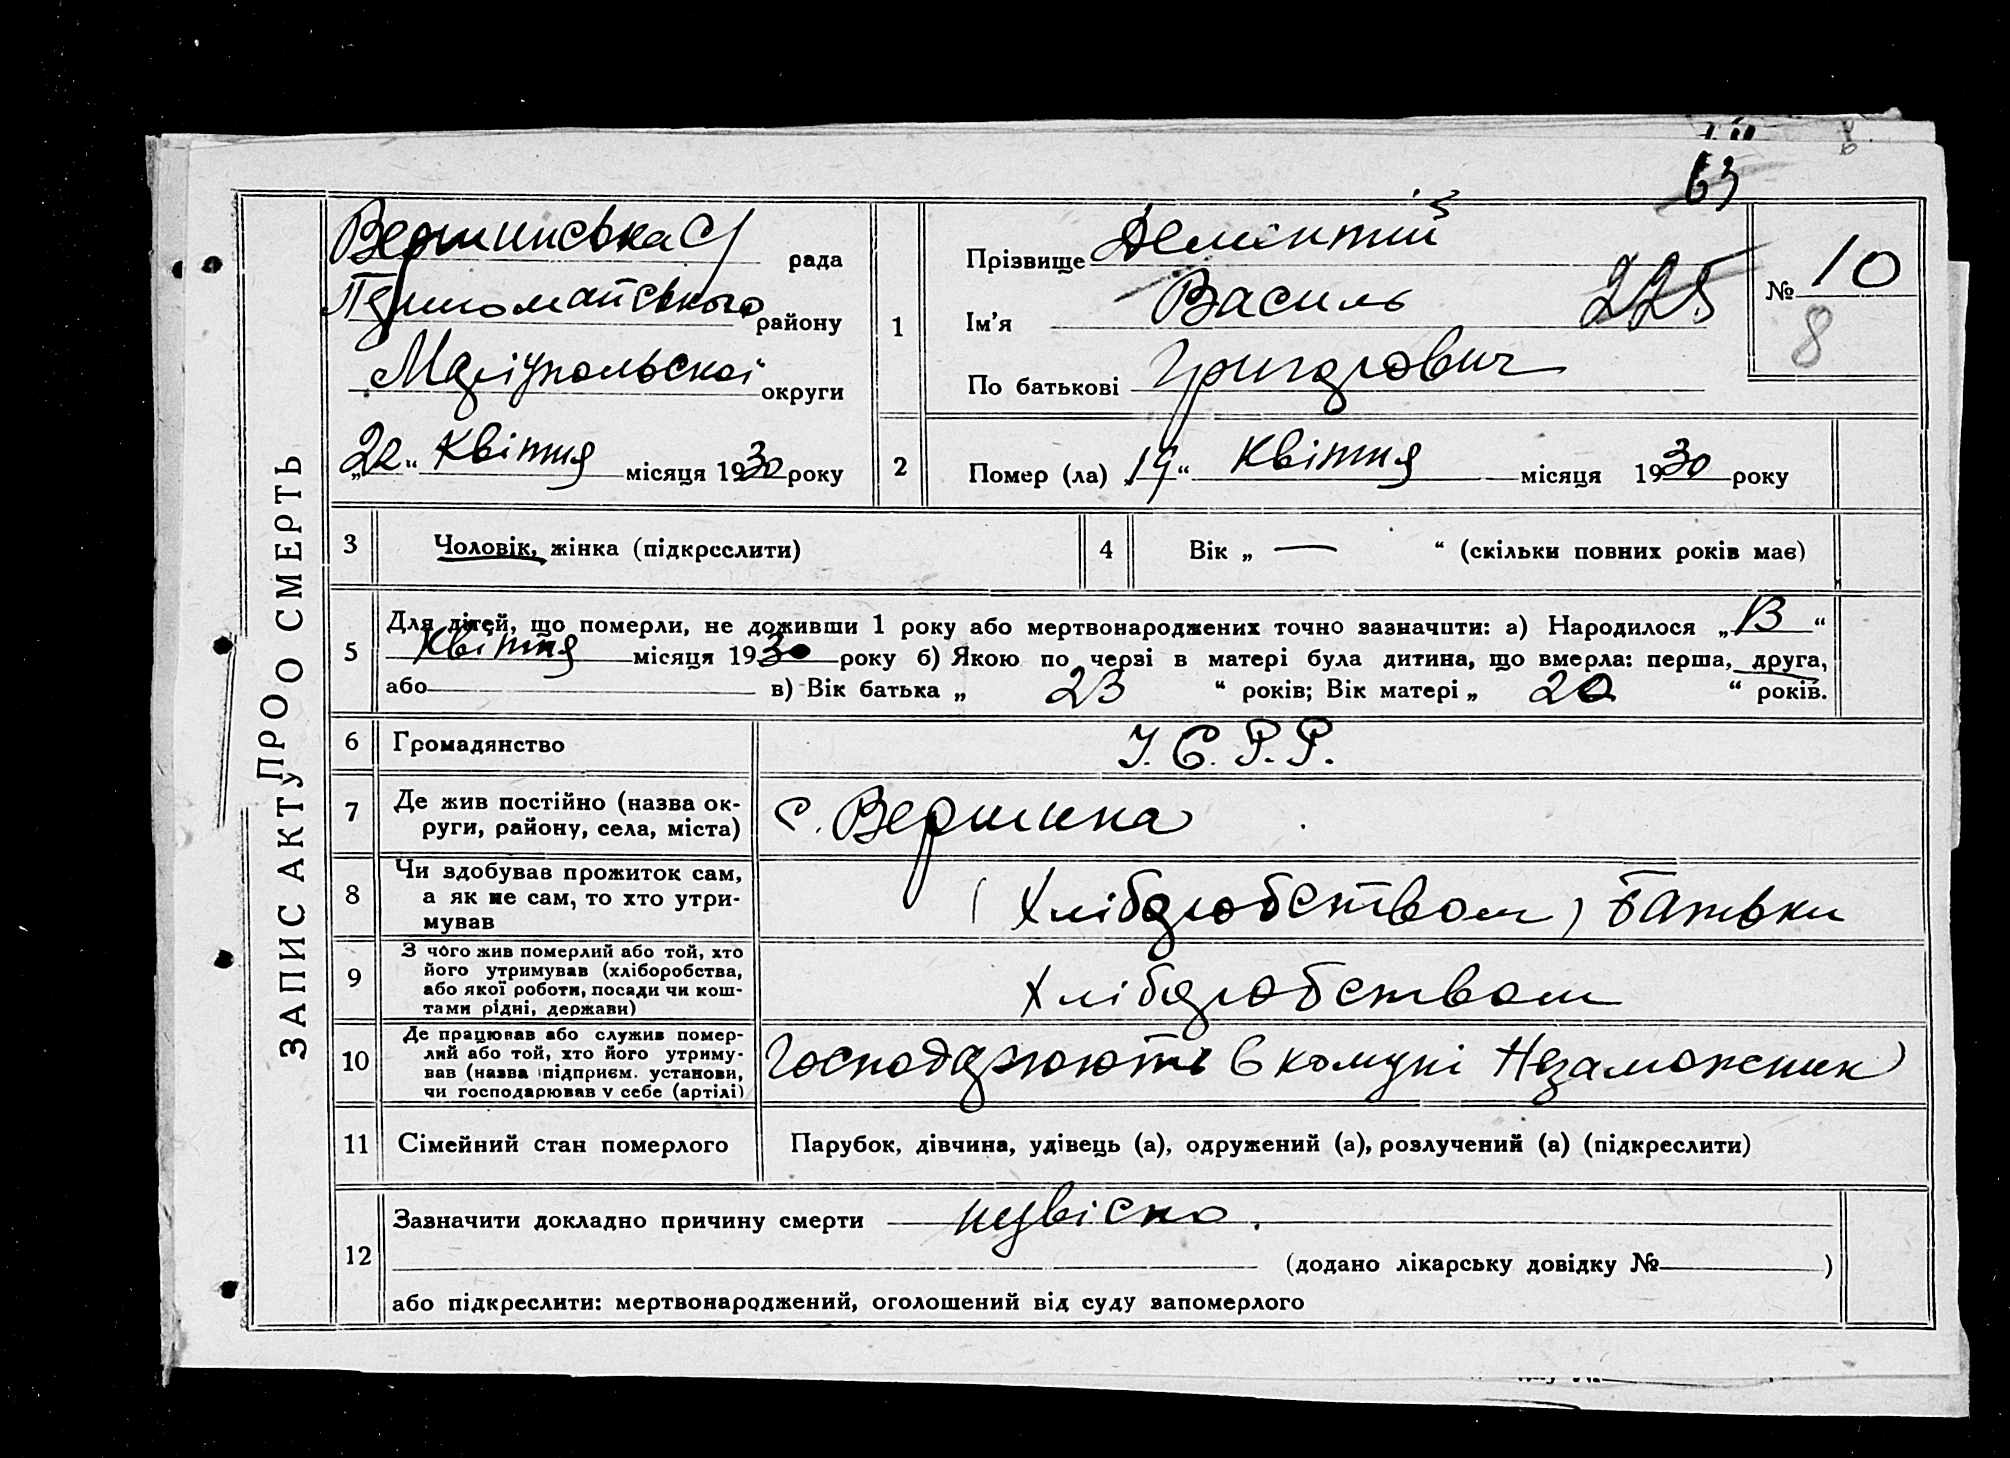 63
Вершинська С/ рада
Першомайського району
Маріупольскої округи
„22“ Квітня місяця 1930 року
1
Прізвище Дементій
Ім'я Василь 225
По батькові Григорович
№ 10
8
2
Помер (ла) „19“ Квітня місяця 1930 року
ЗАПИС АКТУ ПРО СМЕРТЬ
3 Чоловік, жінка (підкреслити)
4 Вік „ — “ (скільки повних років має)
5 Для дітей, що померли, не доживши 1 року або мертвонароджених точно зазначити: а) Народилося „13“
Квітня місяця 1930 року б) Якою по черзі в матері була дитина, що вмерла: перша, друга,
або в) Вік батька „ 23 “ років; Вік матері „ 20 “ років.
6 Громадянство У.С.Р.Р.
7 Де жив постійно (назва ок-
руги, району, села, міста) с. Вершина
8 Чи здобував прожиток сам,
а як не сам, то хто утри-
мував (Хліборобством) Батьки
9 З чого жив померлий або той, хто
його утримував (хліборобства,
або якої роботи, посади чи кош-
тами рідні, держави) Хліборобством
10 Де працював або служив помер-
лий або той, хто його утриму-
вав (назва підприєм. установи,
чи господарював у себе (артілі) Господарюють в комуні Незаможник
11 Сімейний стан померлого Парубок, дівчина, удівець (а), одружений (а), розлучений (а) (підкреслити)
12 Зазначити докладно причину смерти
(додано лікарську довідку № )
або підкреслити: мертвонароджений, оголошений від суду запомерлого